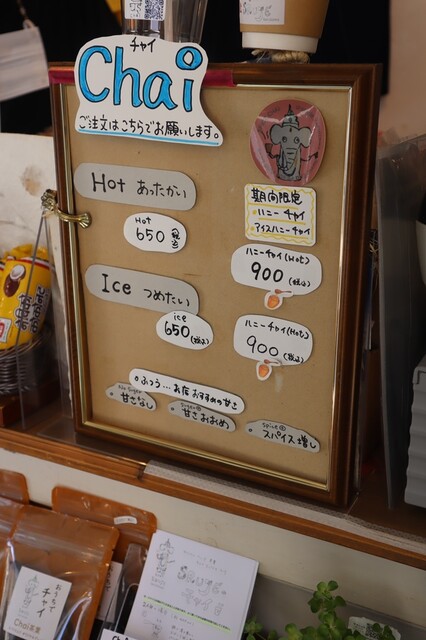 チャイ
Chai
ご注文はこちらでお願いします。
Hot あったかい
Hot
650 (税込)
Ice つめたい
ice
650 (税込)
期間限定
ハニーチャイ
アイスハニーチャイ
ハニーチャイ(Hot)
900 (税込)
ハニーチャイ(Hot)
900 (税込)
ふつう…お店おすすめの甘さ
No Sugar
甘さなし
甘さおおめ
スパイス増し
おうちで
チャイ
Chai